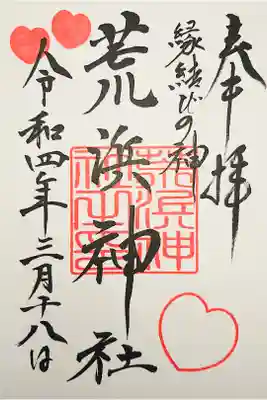 奉拝
縁結びの神
荒浜神社
令和四年三月十八日